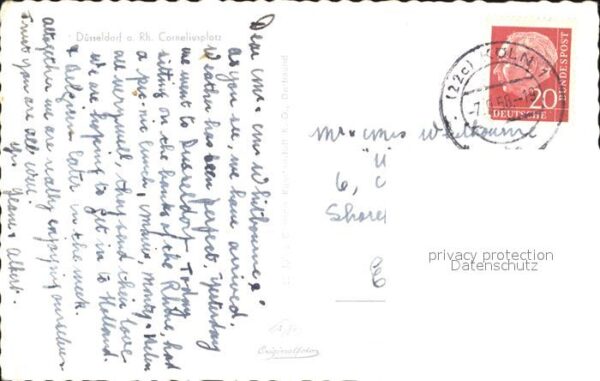 Düsseldorf a. Rh. Corneliusplatz
Dear Mr & Mrs Whitbourne,
as you see, we have arrived,
weather has been perfect. Yesterday
we went to Dusseldorf. Today
sitting on the banks of the Rhine, had
a pic-nic lunch,
are very well, they send their love
we are hoping to get in to Holland
& Belgium later in the week.
altogether we are really enjoying ourselves
Trust you are all well
Yrs Albert.
Originalfoto
(22c) KÖLN 1
58-18
20
DEUTSCHE
BUNDESPOST
Mr & Mrs Whitbourne
6, C
Shore
E
privacy protection
Datenschutz